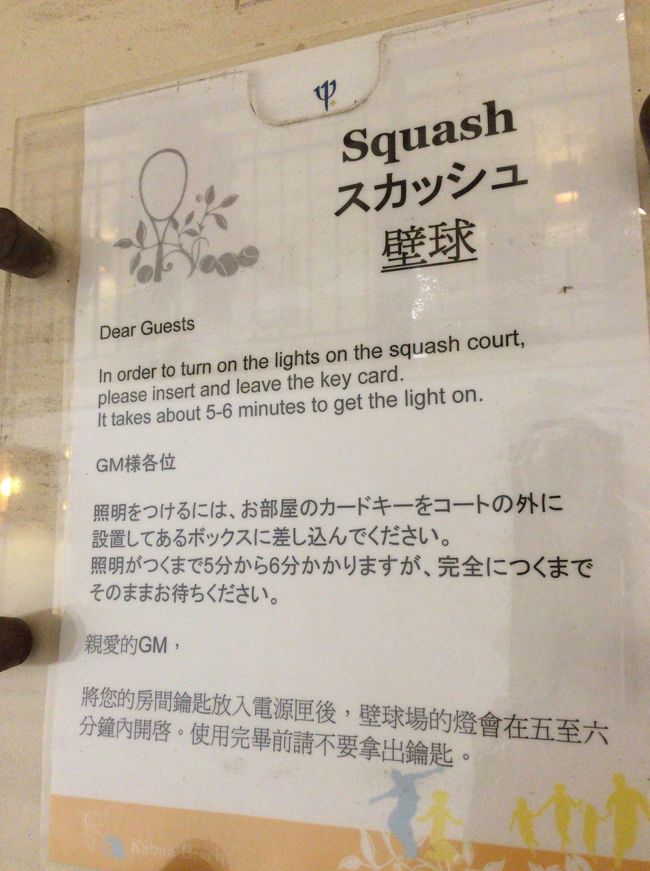 Squash
スカッシュ
壁球
Dear Guests
In order to turn on the lights on the squash court,
please insert and leave the key card.
It takes about 5-6 minutes to get the light on.
GM様各位
照明をつけるには、お部屋のカードキーをコートの外に
設置してあるボックスに差し込んでください。
照明がつくまで5分から6分かかりますが、完全につくまで
そのままお待ちください。
親愛的GM，
將您的房間鑰匙放入電源匣後，壁球場的燈會在五至六
分鐘內開啓。使用完畢前請不要拿出鑰匙。
Kabira Beach